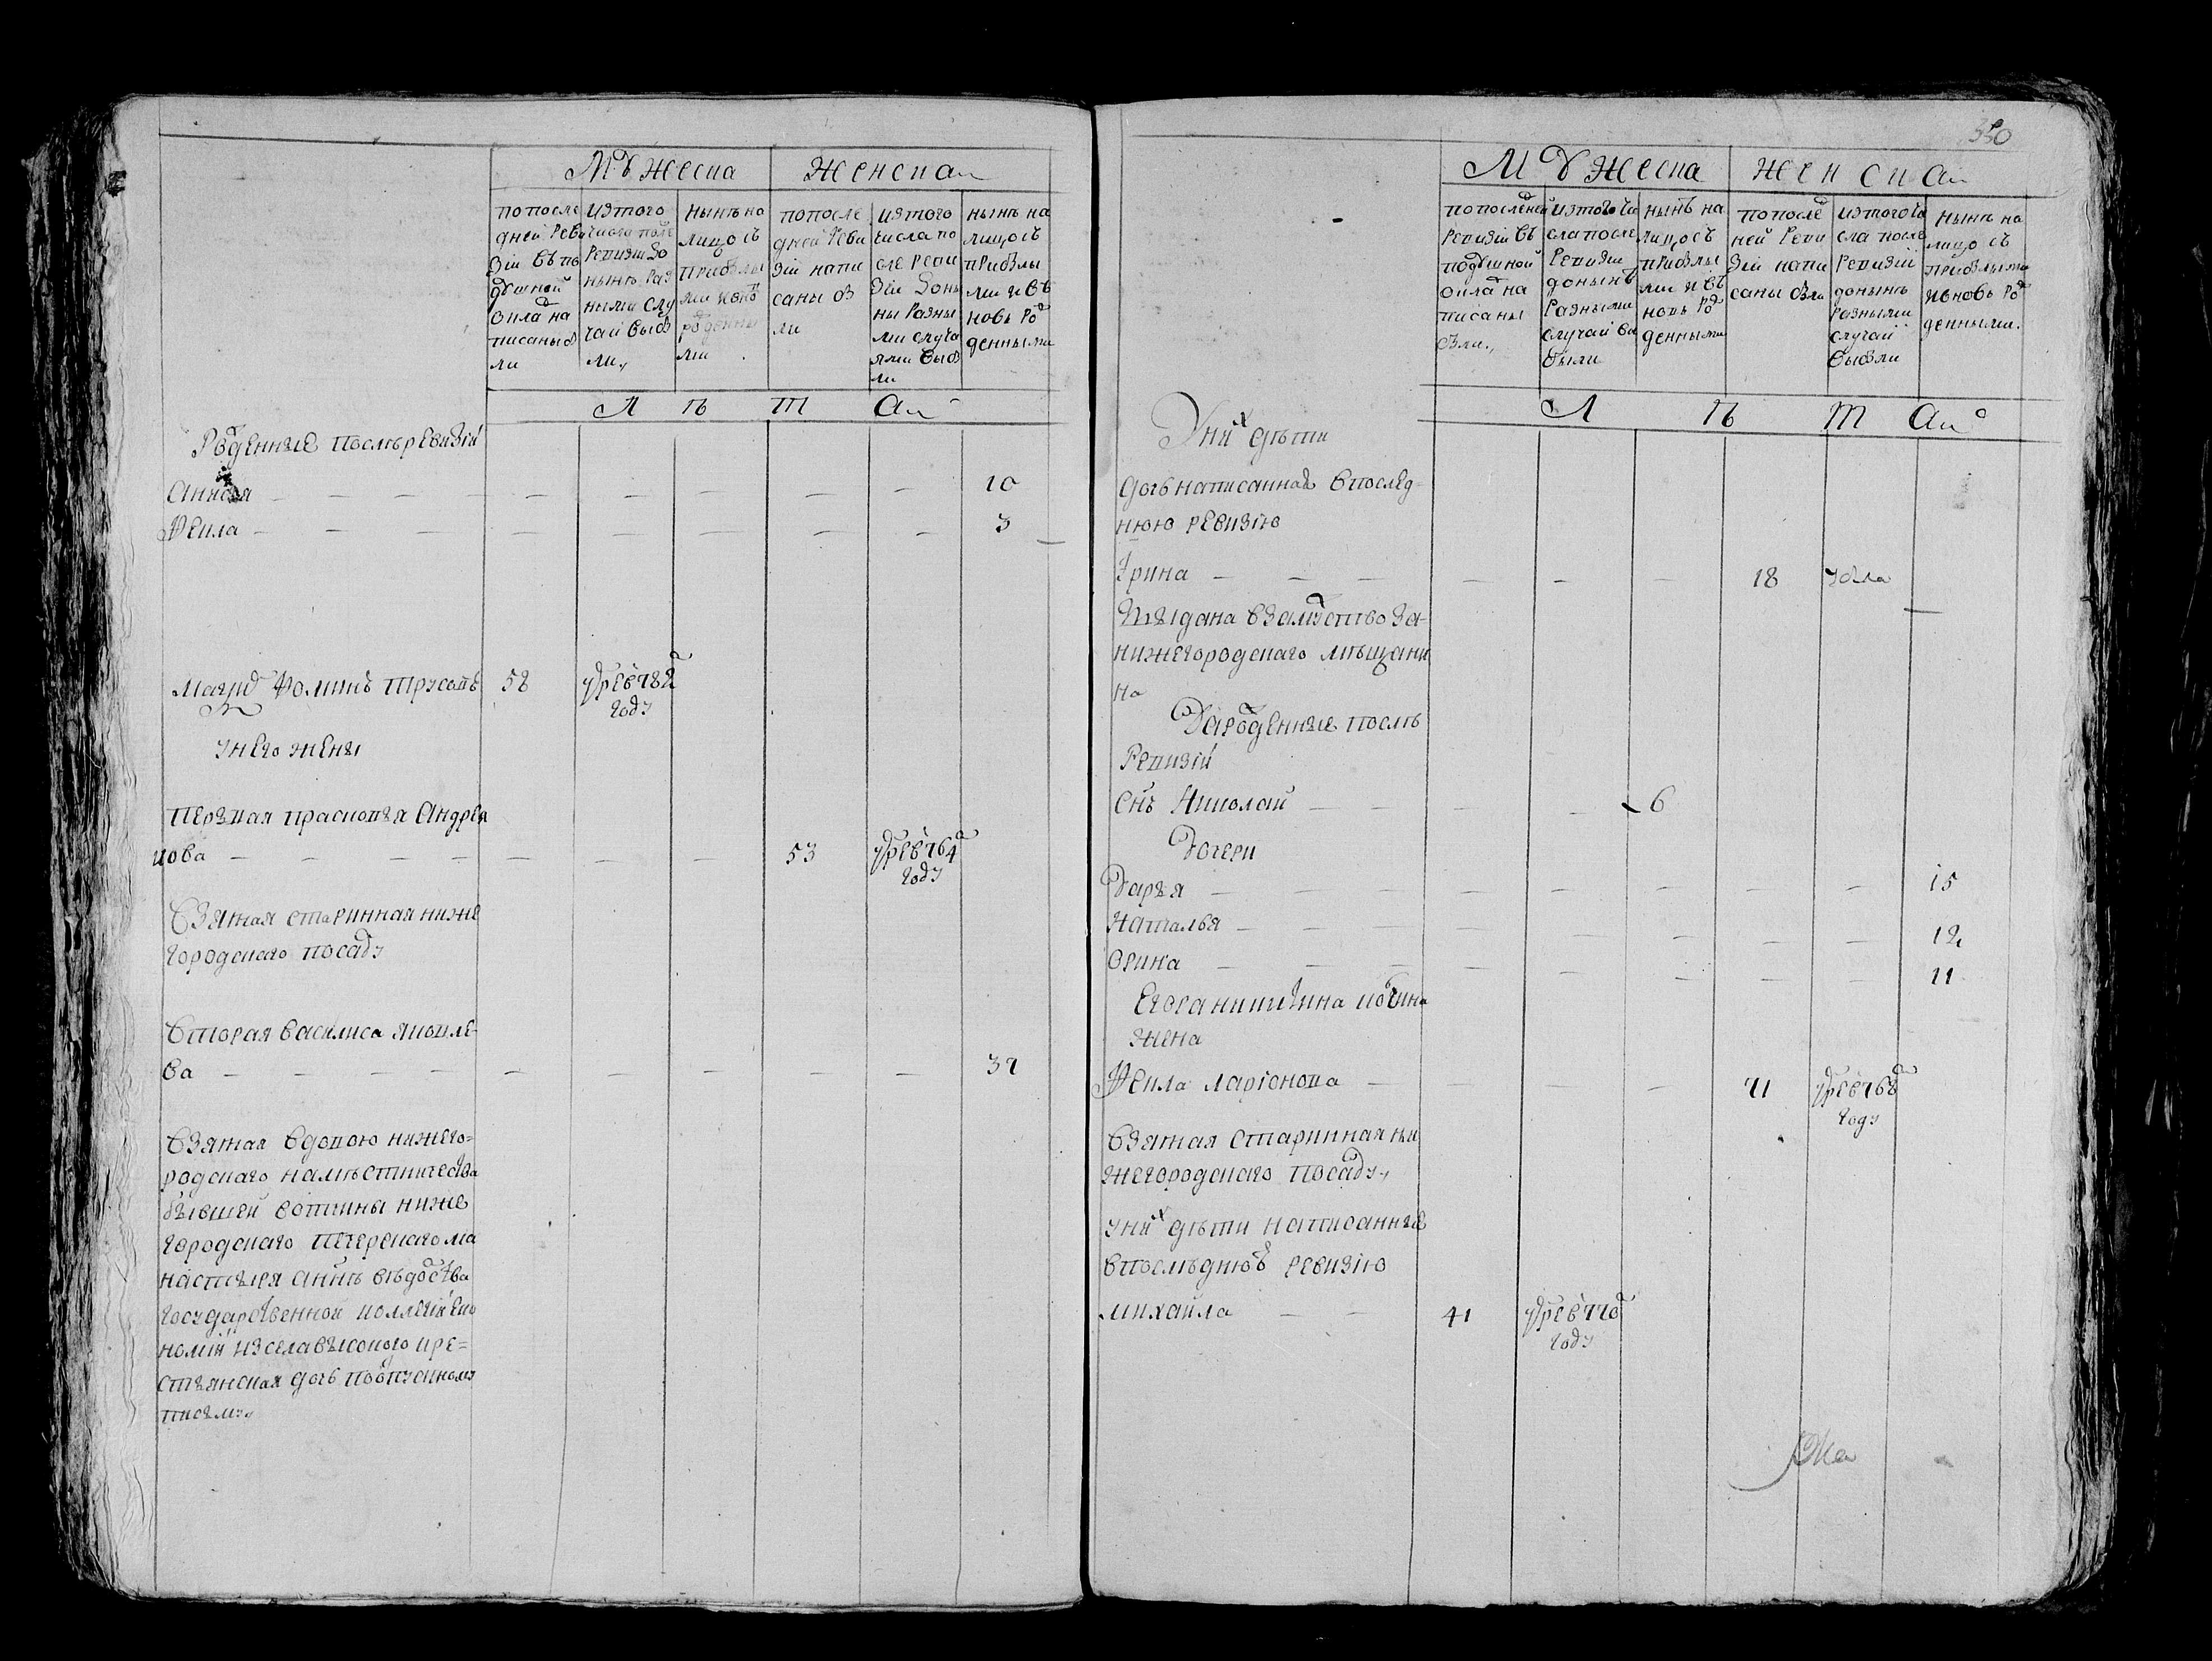 Мужеска
Женска
по после
дней реви
зии въ по
душной
оклад на
писаны б
ли
из того
числа после
ревизии до
ныне раз
ными слу
чаи выб
ли
ныне на
лицо съ
прибылы
ми и вно
рожденны
ми
по после
дней реви
зии напи
саны б
ли
из того
числа по
сле реви
зии доны
ны разны
ми случа
ями выб
ли
ныне на
лицо съ
прибылы
ми и въ
новь ро
жденными
Л ѣ т а
Рожденные после ревизии
Анна 10
Фекла 3
Фоминъ Трусовъ 58 умре в 782
году
у него жены
первая Прасковья Андрея
нова 53 умре в 764
году
Взятая старинная ниже
городскаго посаду
Вторая Василиса Яковле-
ва 37
Взятая вдовою нижего=
родскаго наместничества
бывшей вотчины ниже
городскаго Печерскаго мо
настыря а ныне ведомства
государственной коллегии Еко
номии из села высокого кре=
стьянская дочь по отпускному
письму
350
Мужеска
Женска
по последней
ревизии въ
подушной
оклад на
писаны
были
из того чи
сла после
ревизии
доныне
разными
случаи вы
были
ныне на
лицо съ
прибылы
ми и въ
новь ро
жденными
по послед
ней реви
зии напи
саны были
из того чи
сла после
ревизии
доныне
разными
случаи
выбыли
ныне на
лицо съ
прибылыми
и вновь ро
жденными
Л ѣ т а
У них дети
дочь написанная в послед=
нюю ревизию
Ирина 18
Выдана в замужство за-
нижегородскаго мещани
на
Да рожденные после
ревизии
снъ Николай 6
Дочери
Дарья 15
Наталья 12
Орина 11
жена
Фекла Ларионова 71 умре в 768
году
Взятая старинная ни
жегородскаго посаду
у них дети написанные
в последнюю ревизию
Михайла 41 умре в 770
году